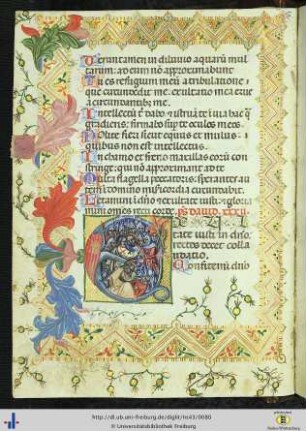 Verumtamen in diluvio aquarū mul
tarum: ad eum nō approximabunt
Tu es refugium meū a tribulatione
que circumdedit me: exultatio mea erue
a circumdantibꝫ me.
Intellectū t' dabo ⁊ istruā te i uia hac q̄
gradieris: firmabo sup te oculos meos
Nolite fieri sicut equus et mulus:
quibus non est intellectus.
In chamo et freno maxillas eorū con
stringe: qui nō approximant ad te
Multa flagella peccatoris: sperantez au
tem ī domino misericordia circumdabit.
Letamini ī dn̄o ⁊ exultate iusti: ⁊ gloria
mini omnes recti corde. ps dauid. xxxii
tate iusti in dn̄o:
rectos decet colla
udatio.
Confitemī dn̄o
http://dl.ub.uni-freiburg.de/diglit/hs43/0080
© Universitätsbibliothek Freiburg